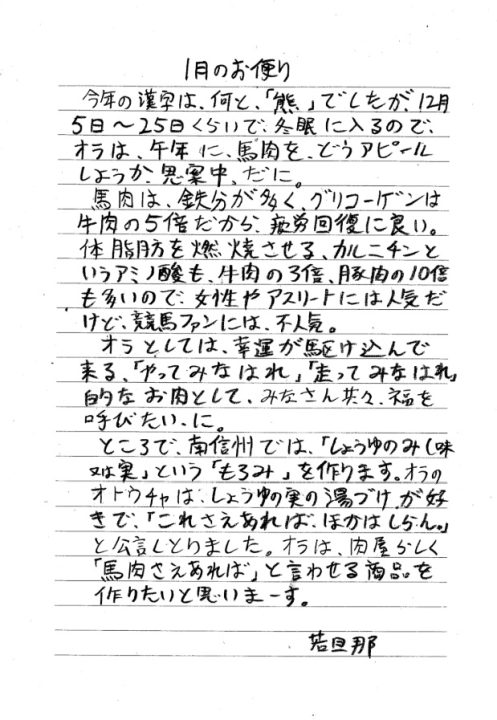 1月のお便り
今年の漢字は、何と、「熊」でしたが、12月
5日〜25日くらいで、冬眠に入るので、
オラは、午年に、馬肉を、どうアピール
しようか、思案中、だに。
馬肉は、鉄分が多く、グリコーゲンは
牛肉の5倍だから、疲労回復に良い。
体脂肪を燃焼させる、カルニチンと
いうアミノ酸も、牛肉の3倍、豚肉の10倍
も多いので、女性やアスリートには人気だ
けど、競馬ファンには、不人気。
オラとしては、幸運が駆け込んで
来る、「やってみなはれ」「走ってみなはれ」
的なお肉として、みなさん共々、福を
呼びたい、に。
ところで、南信州では、「しょうゆのみ(味
又は実」という「もろみ」を作ります。オラの
オトウチャは、しょうゆの実の湯づけ、が好
きで、「これさえあれば、ほかはしらん。」
と公言しとりました。オラは、肉屋らしく
「馬肉さえあれば」と言わせる商品を
作りたいと思いまーす。
若旦那